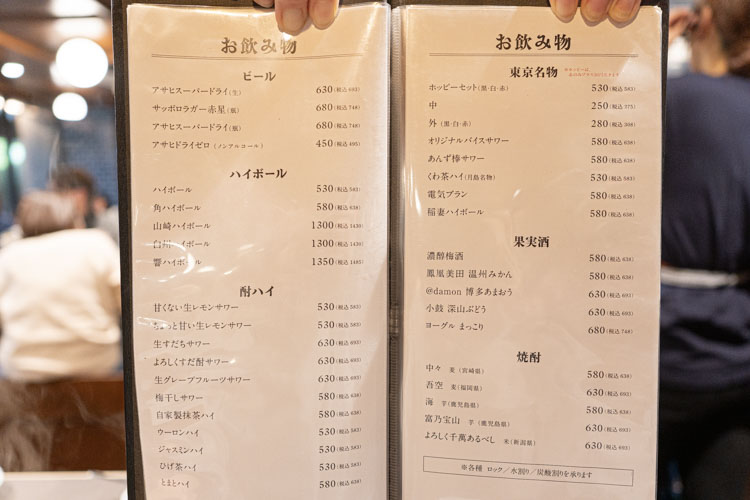 お飲み物
ビール
アサヒスーパードライ(生) 630(税込 693)
サッポロラガー赤星(瓶) 680(税込 748)
アサヒスーパードライ(瓶) 680(税込 748)
アサヒドライゼロ(ノンアルコール) 450(税込 495)
ハイボール
ハイボール 530(税込 583)
角ハイボール 580(税込 638)
山崎ハイボール 1300(税込 1430)
白州ハイボール 1300(税込 1430)
響ハイボール 1350(税込 1485)
酎ハイ
甘くない生レモンサワー 530(税込 583)
ちょっと甘い生レモンサワー 530(税込 583)
生すだちサワー 630(税込 693)
よろしくすだ酎サワー 630(税込 693)
生グレープフルーツサワー 630(税込 693)
梅干しサワー 580(税込 638)
自家製抹茶ハイ 580(税込 638)
ウーロンハイ 530(税込 583)
ジャスミンハイ 530(税込 583)
ひげ茶ハイ 530(税込 583)
とまとハイ 580(税込 638)
お飲み物
東京名物
ホッピーセット(黒・白・赤) 530(税込 583)
中 250(税込 275)
外(黒・白・赤) 280(税込 308)
オリジナルバイスサワー 580(税込 638)
あんず棒サワー 580(税込 638)
くわ茶ハイ(月島名物) 530(税込 583)
電気ブラン 580(税込 638)
稲妻ハイボール 580(税込 638)
果実酒
濃醇梅酒 580(税込 638)
鳳凰美田 温州みかん 580(税込 638)
@damon 博多あまおう 630(税込 693)
小鼓 深山ぶどう 630(税込 693)
ヨーグル まっこり 680(税込 748)
焼酎
中々 麦(宮崎県) 580(税込 638)
吾空 麦(福岡県) 630(税込 693)
海 芋(鹿児島県) 580(税込 638)
富乃宝山 芋(鹿児島県) 630(税込 693)
よろしく千萬あるべし 米(新潟県) 630(税込 693)
※各種 ロック/水割り/炭酸割りを承ります